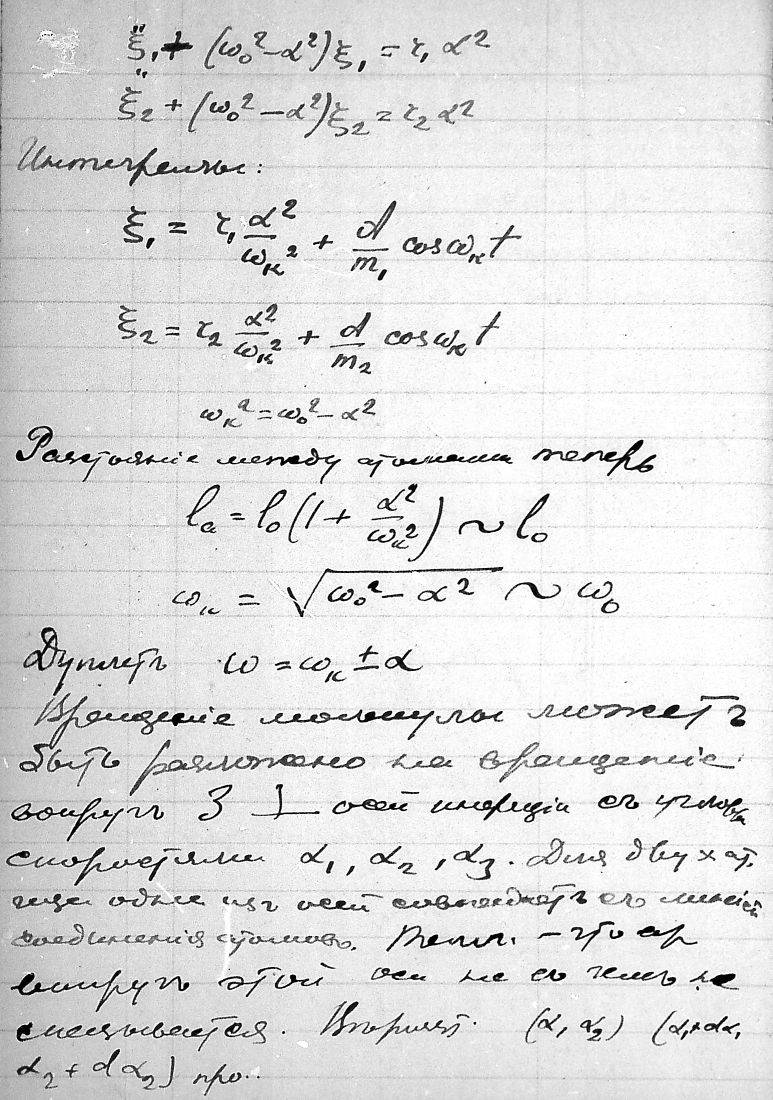 ξ̈₁ + (ω₀² − α²)ξ₁ = r₁α²
ξ̈₂ + (ω₀² − α²)ξ₂ = r₂α²
Интегралы:
ξ₁ = r₁ α²/ωₖ² + A/m₁ cos ωₖt
ξ₂ = r₂ α²/ωₖ² + A/m₂ cos ωₖt
ωₖ² = ω₀² − α²
Разстоянiе между атомами теперь
lₐ = l₀(1 + α²/ωₖ²) ~ l₀
ωₖ = √(ω₀² − α²) ~ ω₀
Дуплетъ ω = ωₖ ± α
Вращенiе молекулы можетъ
быть разложено на вращенiе
вокругъ 3 ⊥ осей инерцiи съ углов.
скоростями α₁, α₂, α₃. Для двух ат.
газа одна изъ осей совпадаетъ съ линiей
соединенiя атомовъ.
вокругъ этой оси не
сказывается. (α₁ α₂) (α₁+dα₁
α₂ + dα₂) про..